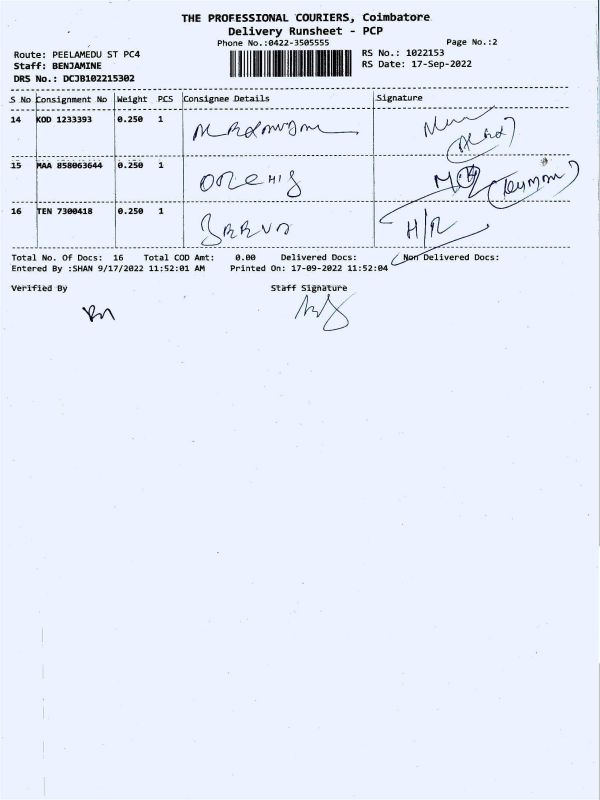 THE PROFESSIONAL COURIERS, Coimbatore
Delivery Runsheet - PCP
Phone No.:0422-3505555
Page No.:2
Route: PEELAMEDU ST PC4
RS No.: 1022153
Staff: BENJAMINE
RS Date: 17-Sep-2022
DRS No.: DCJB102215302
S No Consignment No Weight PCS Consignee Details Signature
14 KOD 1233393 0.250 1
15 MAA 858063644 0.250 1
16 TEN 7300418 0.250 1 H/R
Total No. Of Docs: 16 Total COD Amt: 0.00 Delivered Docs: Non Delivered Docs:
Entered By :SHAN 9/17/2022 11:52:01 AM Printed On: 17-09-2022 11:52:04
Verified By Staff Signature